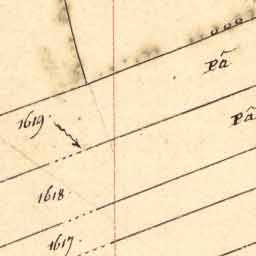 Pã
1619.
Pã
1618.
1617.